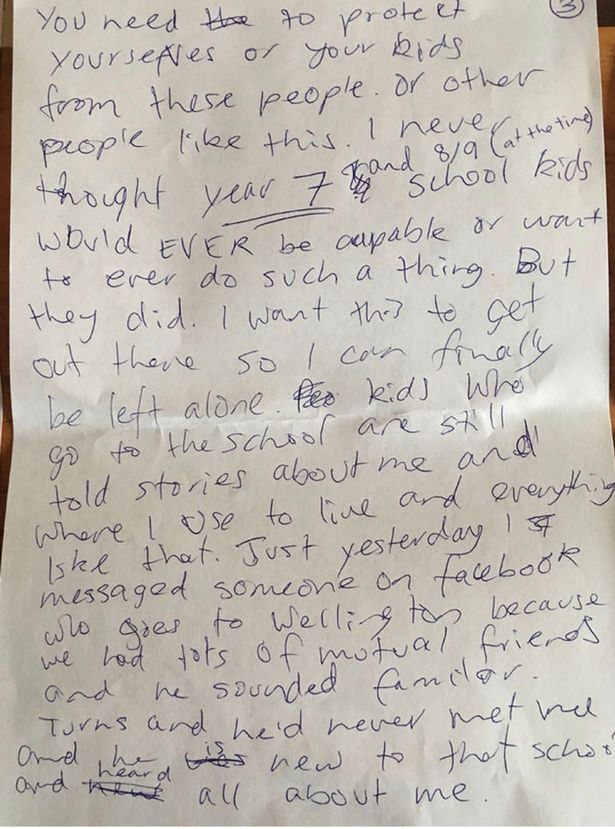 ③
You need the to protect
yourselves or your kids
from these people. or other
people like this. I never
thought year 7 and 8/9 (at the time) school kids
would EVER be capable or want
to ever do such a thing. But
they did. I want this to get
out there so I can finally
be left alone. kids who
go to the school are still
told stories about me and
where I use to live and everything
like that. Just yesterday I
messaged someone on facebook
who goes to Wellington because
we had lots of mutual friends
and he sounded familar.
Turns and he'd never met me
and he is new to that school
and heard all about me.